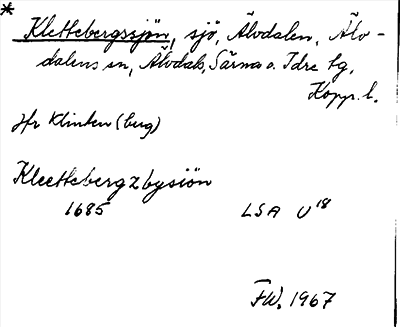 * Klettebergssjön, sjö, Älvdalen, Älv-
dalens sn, Älvdals, Särna o. Idre tg,
Kopp. l.
Jfr Klinten (berg)
Kleettebergzbysiön
1685 LSA U 18
FW. 1967